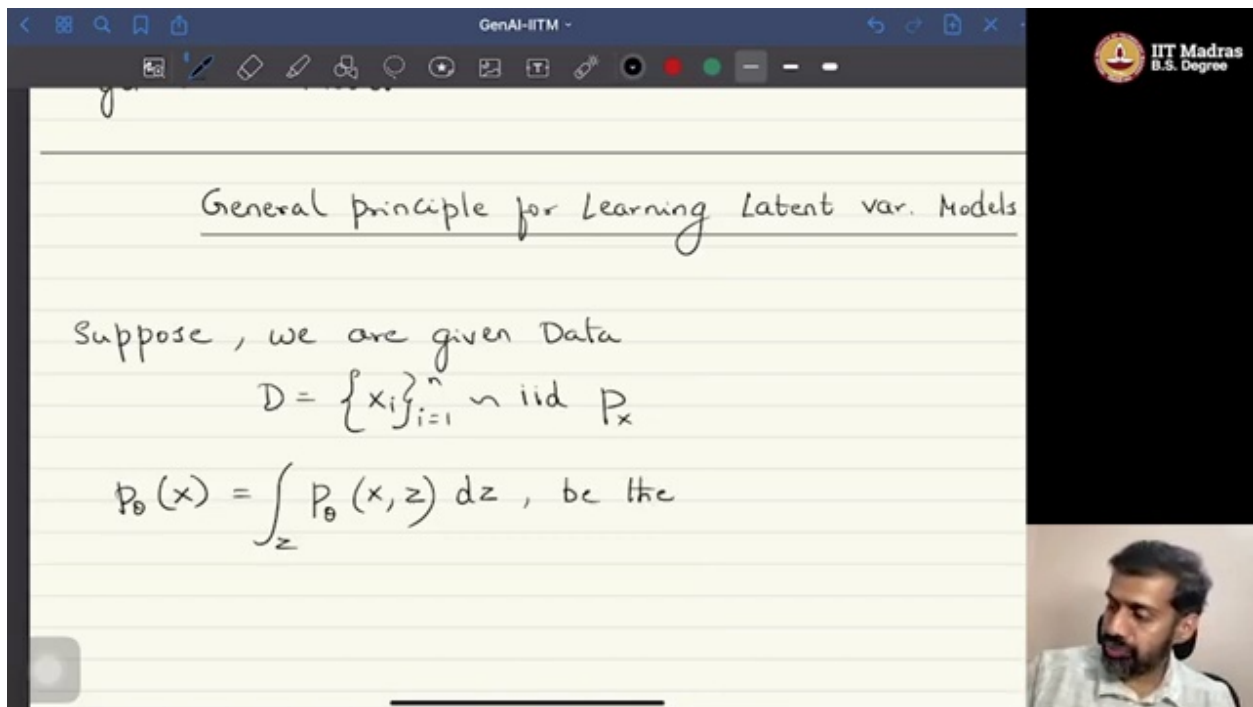 GenAI-IITM
IIT Madras
B.S. Degree
General principle for Learning Latent var. Models
Suppose, we are given Data
D = {x_i}_{i=1}^n ~ iid p_x
p_θ(x) = ∫_z p_θ(x, z) dz, be the